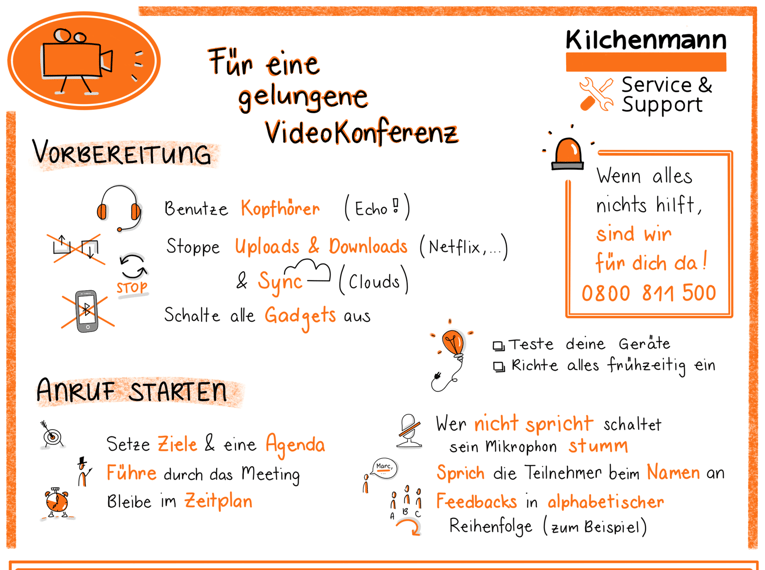 Für eine
gelungene
VideoKonferenz
Kilchenmann
Service &
Support
VORBEREITUNG
Benutze Kopfhörer (Echo!)
Stoppe Uploads & Downloads (Netflix,...)
STOP
& Sync (Clouds)
Schalte alle Gadgets aus
Wenn alles
nichts hilft,
sind wir
für dich da!
0800 811 500
Teste deine Geräte
Richte alles frühzeitig ein
ANRUF STARTEN
Setze Ziele & eine Agenda
Führe durch das Meeting
Bleibe im Zeitplan
Wer nicht spricht schaltet
sein Mikrophon stumm
Marc,
Sprich die Teilnehmer beim Namen an
A B C
Feedbacks in alphabetischer
Reihenfolge (zum Beispiel)